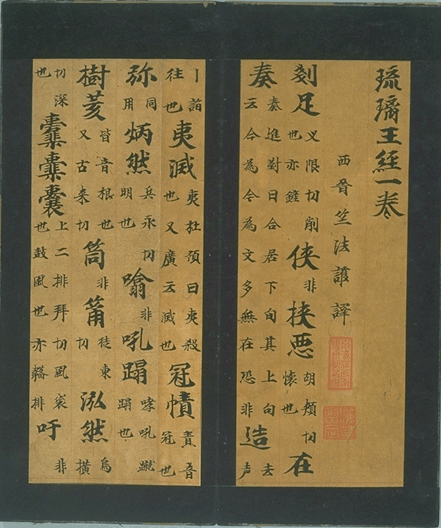 琉璃王經一卷
西晉竺法護譯
剗足 又限切削也亦鏟 俠 非 挾惡 胡頰切懷也 在
奏 奏進對曰合居下句其上句云合為令為文多無在恐非 造 去声
丨詣往也 夷滅 夷杜預曰夷殺也又廣云滅也 冠幘 責音冠也
弥 同用 炳然 兵永切明也 噏 非 吼蹋 哮吼蹴蹋也
樹荄 皆音根也又古来切 筒 非 筩 徒東切 泓然 烏橫
切深也 上二排拜切風囊也鼓風也亦排 非 吁